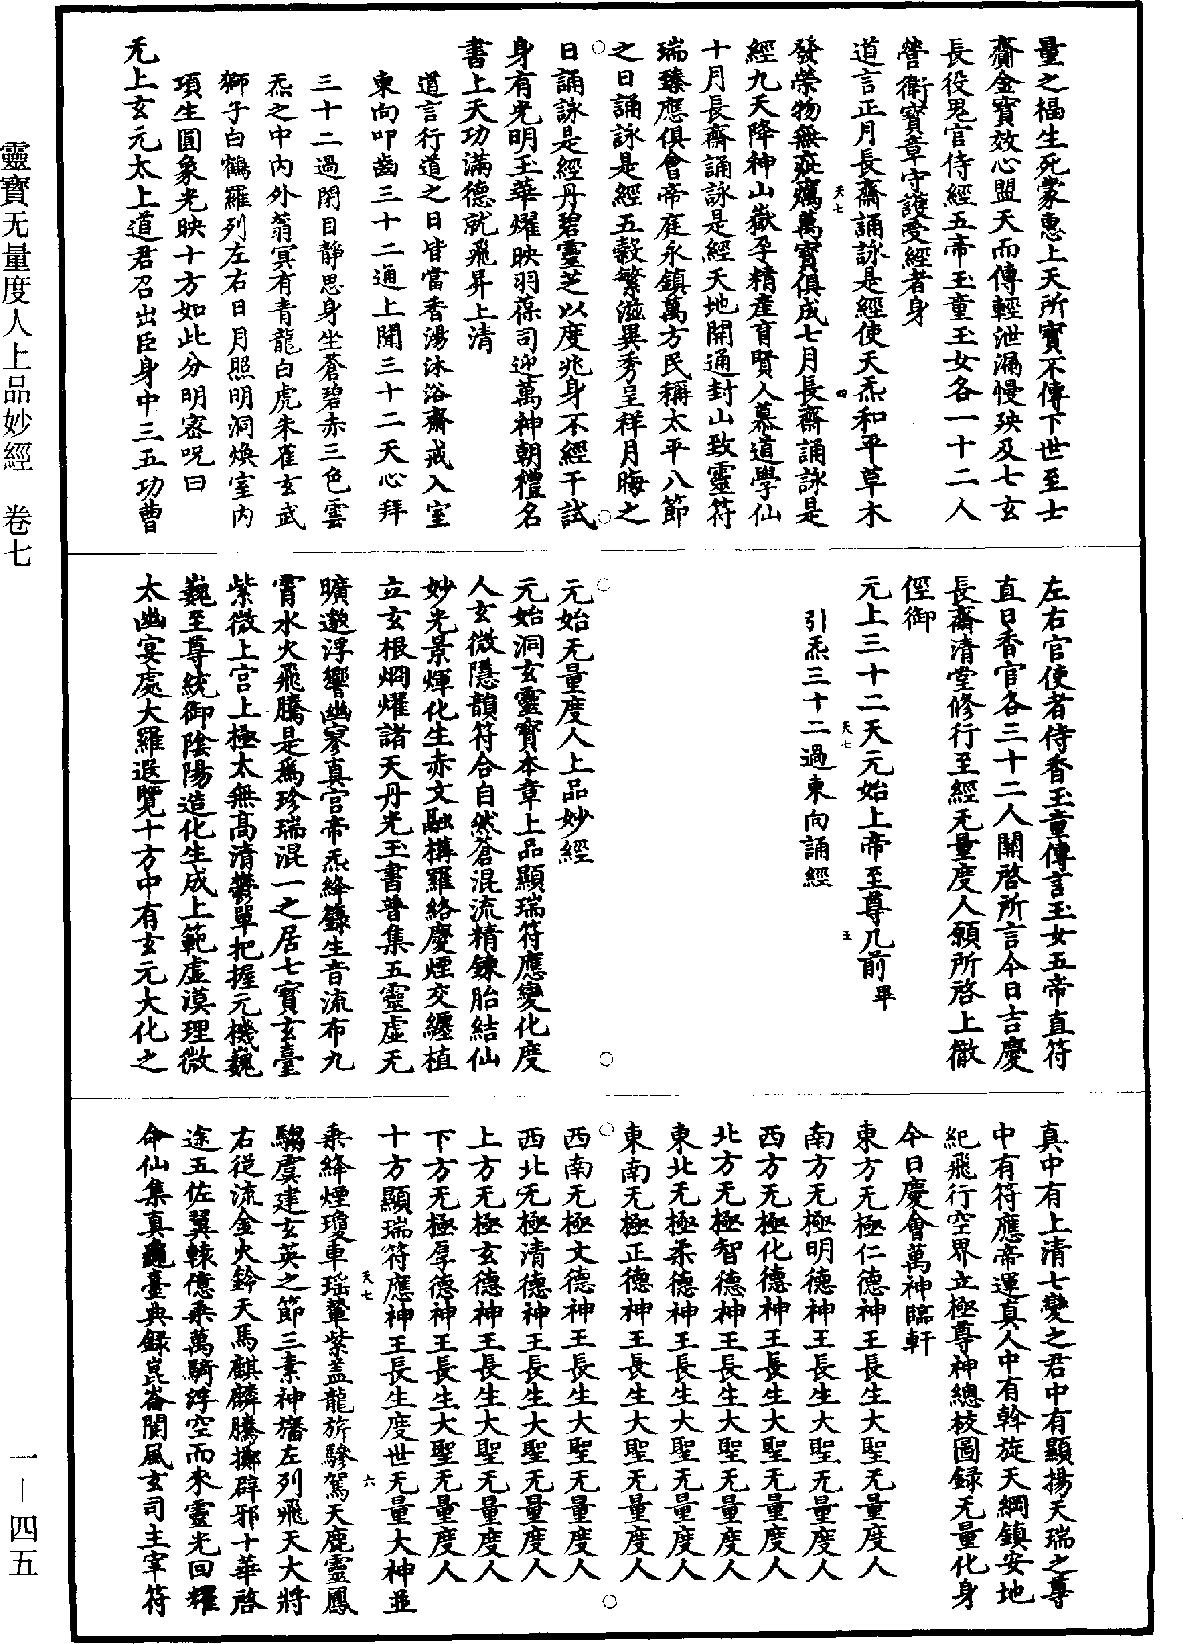 量之福生死蒙惠上天所寶不傳下世至士
齎金寶效心盟天而傳輕泄漏慢殃及七玄
長役鬼官侍經五帝玉童玉女各一十二人
營衛寶章守護受經者身
道言正月長齋誦詠是經使天炁和平草木
發榮物無疵癘萬寶俱成七月長齋誦詠是
經九天降神山嶽孕精產育賢人慕道學仙
十月長齋誦詠是經天地開通封山致靈符
瑞臻應俱會帝庭永鎮萬方民稱太平八節
之日誦詠是經五穀繁滋異秀呈祥月晦之
日誦詠是經丹碧靈芝以度兆身不經干試
身有光明玉華耀映羽葆司迎萬神朝禮名
書上天功滿德就飛昇上清
道言行道之日皆當香湯沐浴齋戒入室
東向叩齒三十二通上聞三十二天心拜
三十二過閉目靜思身坐蒼碧赤三色雲
炁之中內外蓊冥有青龍白虎朱雀玄武
獅子白鶴羅列左右日月照明洞煥室內
項生圓象光映十方如此分明密呪曰
无上玄元太上道君召出臣身中三五功曹
左右官使者侍香玉童傳言玉女五帝直符
直日香官各三十二人關啓所言今日吉慶
長齋清堂修行至經无量度人願所啓上徹
徑御
元上三十二天元始上帝至尊几前畢
引炁三十二過東向誦經
元始无量度人上品妙經
元始洞玄靈寶本章上品顯瑞符應變化度
人玄微隱韻符合自然蒼混流精鍊胎結仙
妙光景煇化生赤文融構羅絡慶煙交纏植
立玄根烱燿諸天丹光玉書普集五靈虛无
曠邈浮響幽寥真宫帝炁絳籙生音流布九
霄水火飛騰是爲珍瑞混一之居七寶玄臺
紫微上宮上極太無高清鬱單把握元機巍
巍至尊統御陰陽造化生成上範虛漠理微
太幽宴處大羅遐覽十方中有玄元大化之
真中有上清七變之君中有顯揚天瑞之尊
中有符應帝運真人中有斡旋天綱鎮安地
紀飛行空界立極尊神總校圖録无量化身
今日慶會萬神臨軒
東方无極仁德神王長生大聖无量度人
南方无極明德神王長生大聖无量度人
西方无極化德神王長生大聖无量度人
北方无極智德神王長生大聖无量度人
東北无極柔德神王長生大聖无量度人
東南无極正德神王長生大聖无量度人
西南无極文德神王長生大聖无量度人
西北无極清德神王長生大聖无量度人
上方无極玄德神王長生大聖无量度人
下方无極厚德神王長生大聖无量度人
十方顯瑞符應神王長生度世无量大神並
乘絳煙瓊車瑶輦紫盖龍旂驂駕天鹿靈鳳
騶虞建玄英之節三素神旛左列飛天大將
右從流金火鈴天馬麒麟騰擲辟邪十華啓
途五佐翼轅億乘萬騎浮空而來靈光回耀
命仙集真臺典録崑崙閬風玄司主宰符
天七
四
天七
五
天七
六
靈寶无量度人上品妙經　卷七
一—四五